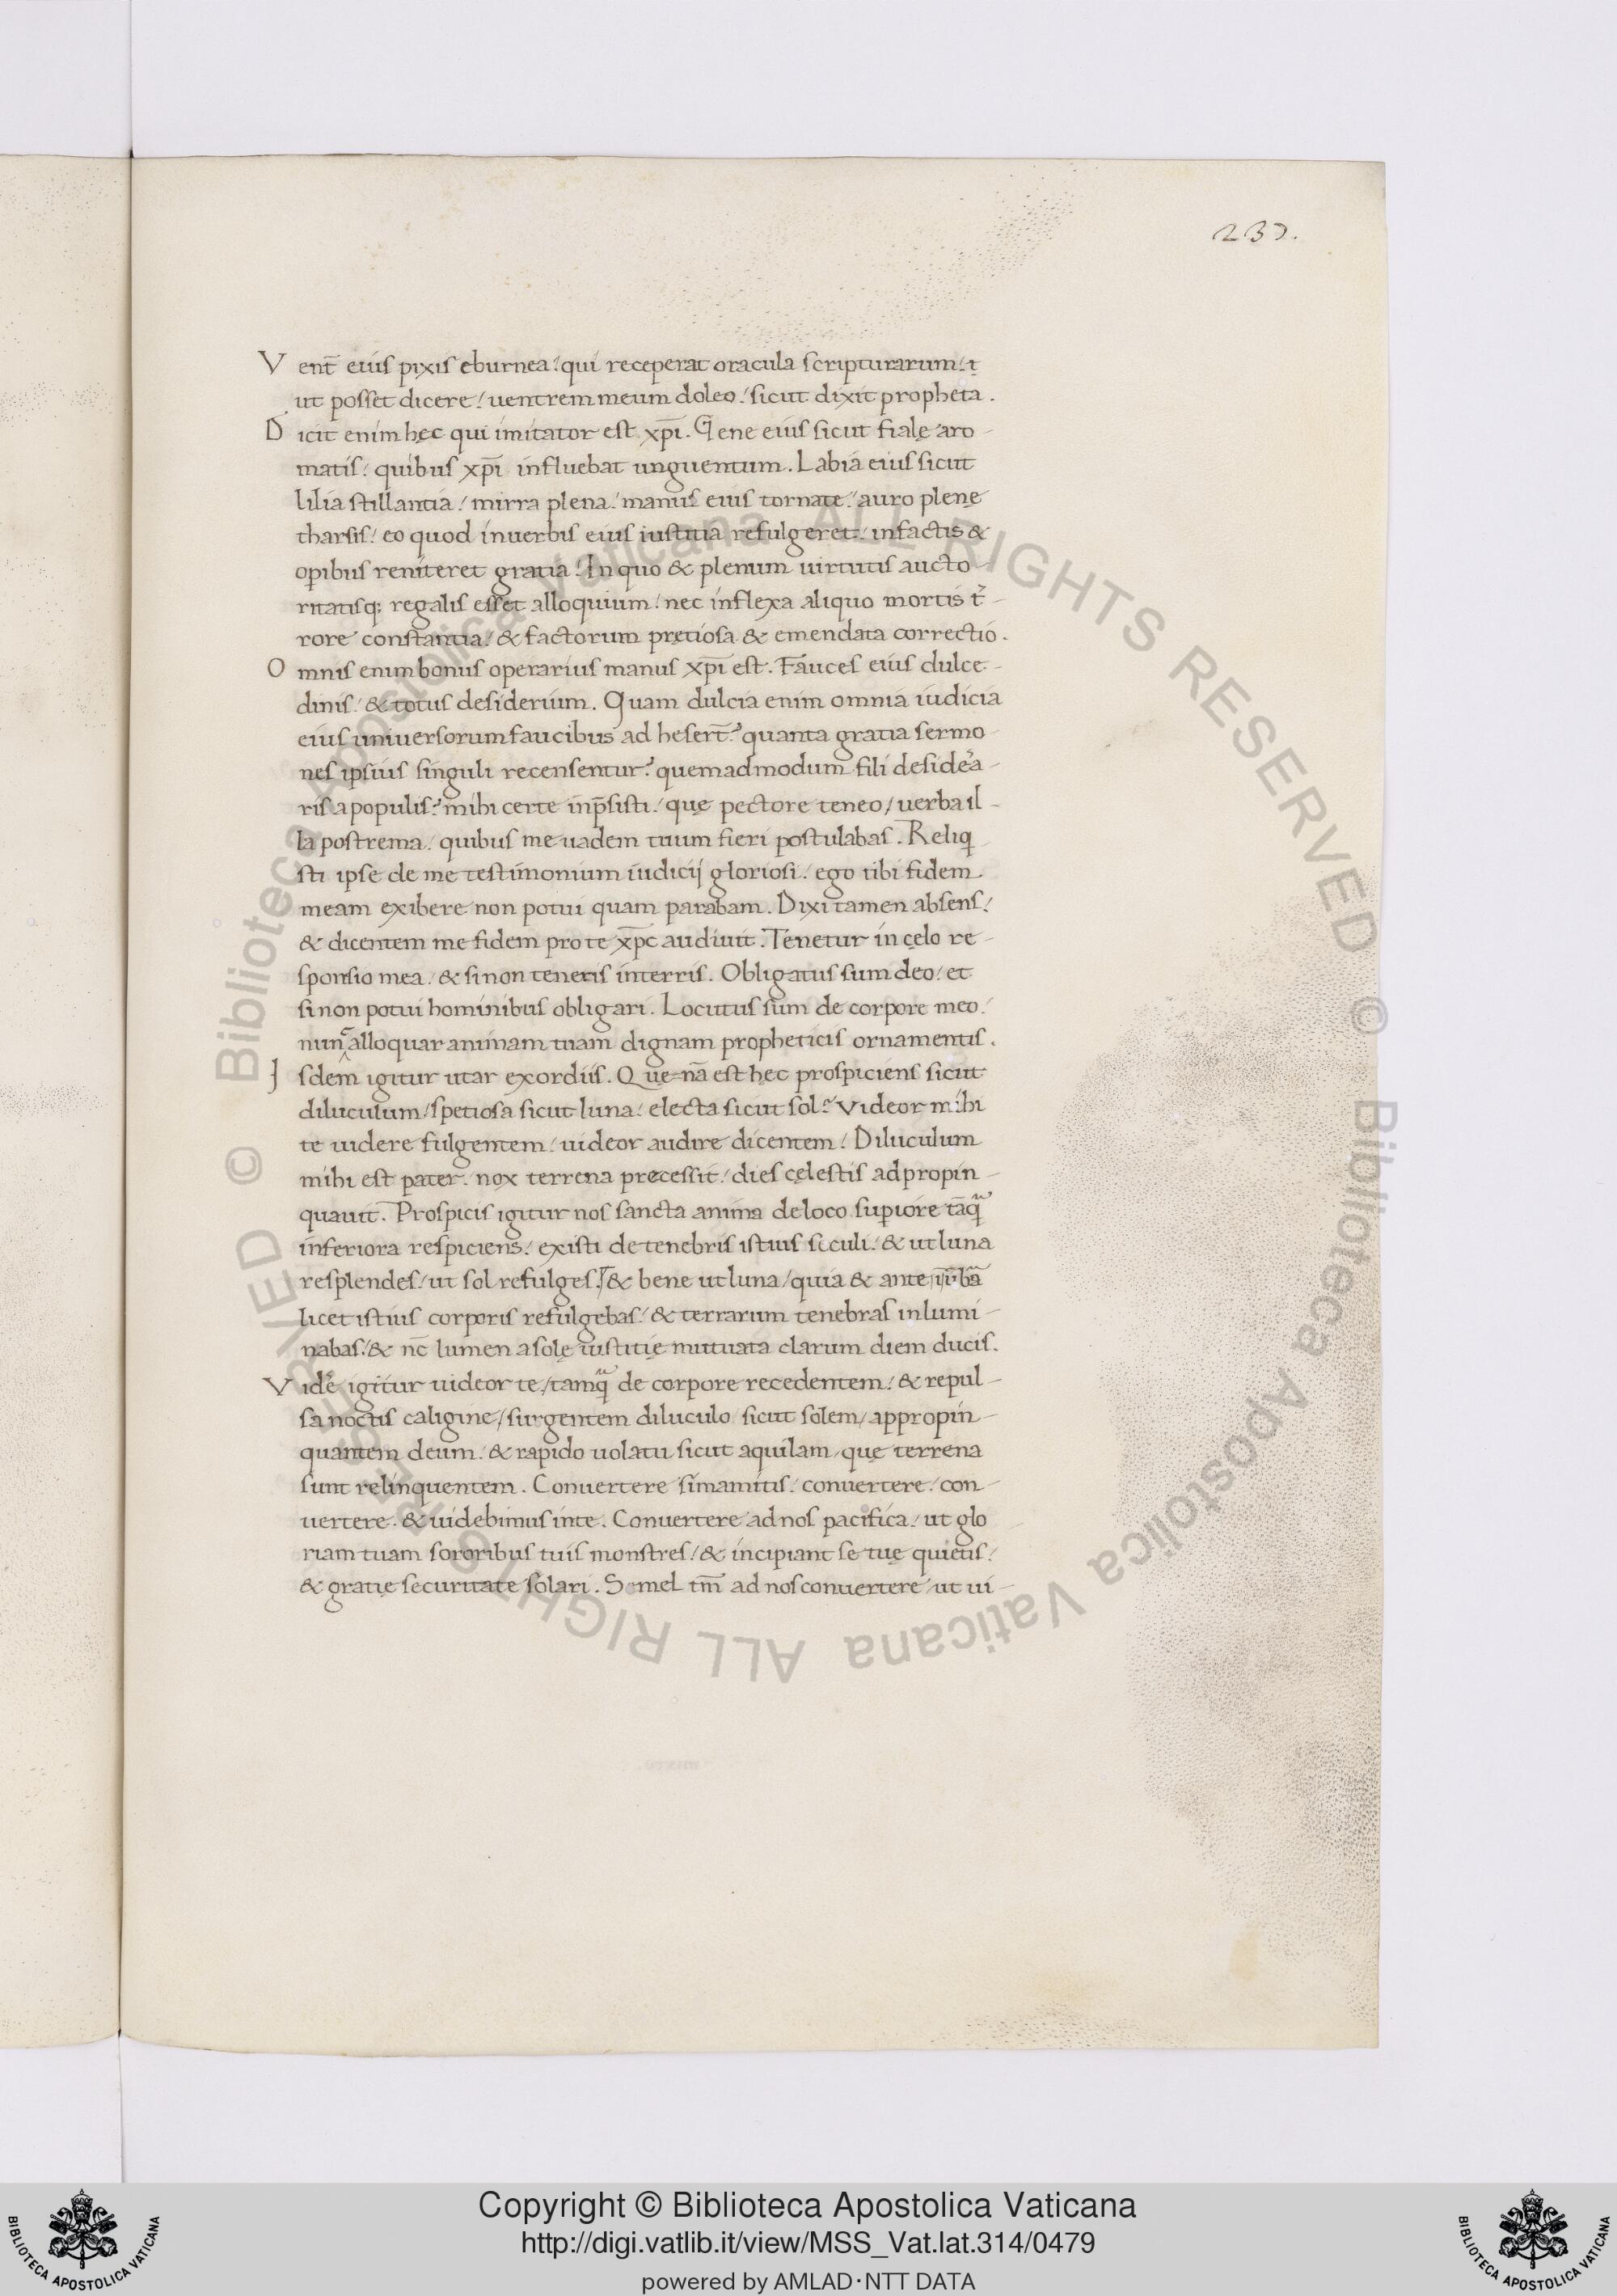 233.
V ent̄ eius pixis eburnea/ qui receperat oracula scripturarum/
ut posset dicere/ uentrem meum doleo/ sicut dixit propheta.
D icit enim hęc qui imitator est xp̄i. Gene eius sicut fialę aro-
matis/ quibus xp̄i influebat unguentum. Labia eius sicut
lilia stillantia/ mirra plena/ manus eius tornate/ auro plenę
tharsis/ eo quod inuerbis eius iustitia refulgeret/ infactis &
opibus reniteret gratia/ Inquo & plenum uirtutis aucto
ritatisq; regalis esset alloquium/ nec inflexa aliquo mortis t̓-
rore constantia/ & factorum prętiosa & emendata correctio.
O mnis enim bonus operarius manus xp̄i est. Fauces eius dulce-
dinis/ & totus desiderium. Quam dulcia enim omnia iudicia
eius uniuersorum faucibus ad hesert̄? quanta gratia sermo
nes ipsius singuli recensentur? quemadmodum fili desid̓ea-
ris a populis? mihi certe inp̄sisti/ quę pectore teneo/ uerba il-
la postrema/ quibus me uadem tuum fieri postulabas. Reliq
sti ipse de me testimonium iudicij gloriosi/ ego tibi fidem
meam exibere non potui quam parabam. Dixi tamen absens/
& dicentem me fidem pro te xp̄c audiuit. Tenetur in cęlo re-
sponsio mea/ & si non teneris interris. Obligatus sum deo/ et
si non potui hominibus obligari. Locutus sum de corpore meo/
nunc alloquar animam tuam dignam propheticis ornamentis.
I sdem igitur utar exordiis. Quę-nā est hęc prospiciens sicut
diluculum/ spetiosa sicut luna/ electa sicut sol? Videor mihi
te uidere fulgentem/ uideor audire dicentem/ Diluculum
mihi est pater/ nox terrena precessit/ dies cęlestis adpropin-
quauit. Prospicis igitur nos sancta anima deloco supiore tāq̃
inferiora respiciens/ existi detenebris istius seculi/ & ut luna
resplendes/ ut sol refulges/ & bene ut luna/ quia & ante
licet istius corporis refulgebas/ & terrarum tenebras inlumi-
nabas/ & nc̄ lumen a solę iustitię mutuata clarum diem ducis.
V id̓e igitur uideor te/ tamq̃ de corpore recedentem/ & repul-
sa noctis caligine/ surgentem diluculo sicut solem/ appropin-
quantem deum/ & rapido uolatu sicut aquilam/ quę terrena
sunt relinquentem. Conuertere simamitis/ conuertere/ con-
uertere/ & uidebimus inte. Conuertere ad nos pacifica/ ut glo
riam tuam sororibus tuis monstres/ & incipiant se tuę quietis/
& gratię securitate solari. Semel tm̄ ad nos conuertere/ ut ui-
© Biblioteca Apostolica Vaticana ALL RIGHTS RESERVED © Biblioteca Apostolica Vaticana ALL RIGHTS RESERVED
Copyright © Biblioteca Apostolica Vaticana
http://digi.vatlib.it/view/MSS_Vat.lat.314/0479
powered by AMLAD·NTT DATA
BIBLIOTECA APOSTOLICA VATICANA
BIBLIOTECA APOSTOLICA VATICANA